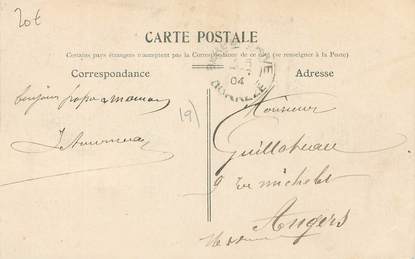 20€
CARTE POSTALE
Certains pays étrangers n'acceptent pas la Correspondance de ce côté (se renseigner à la Poste)
Correspondance
Adresse
04
CORRÈZE
bonjour papa & maman
19)
Monsieur
Guilloteau
9 rue michelet
Angers